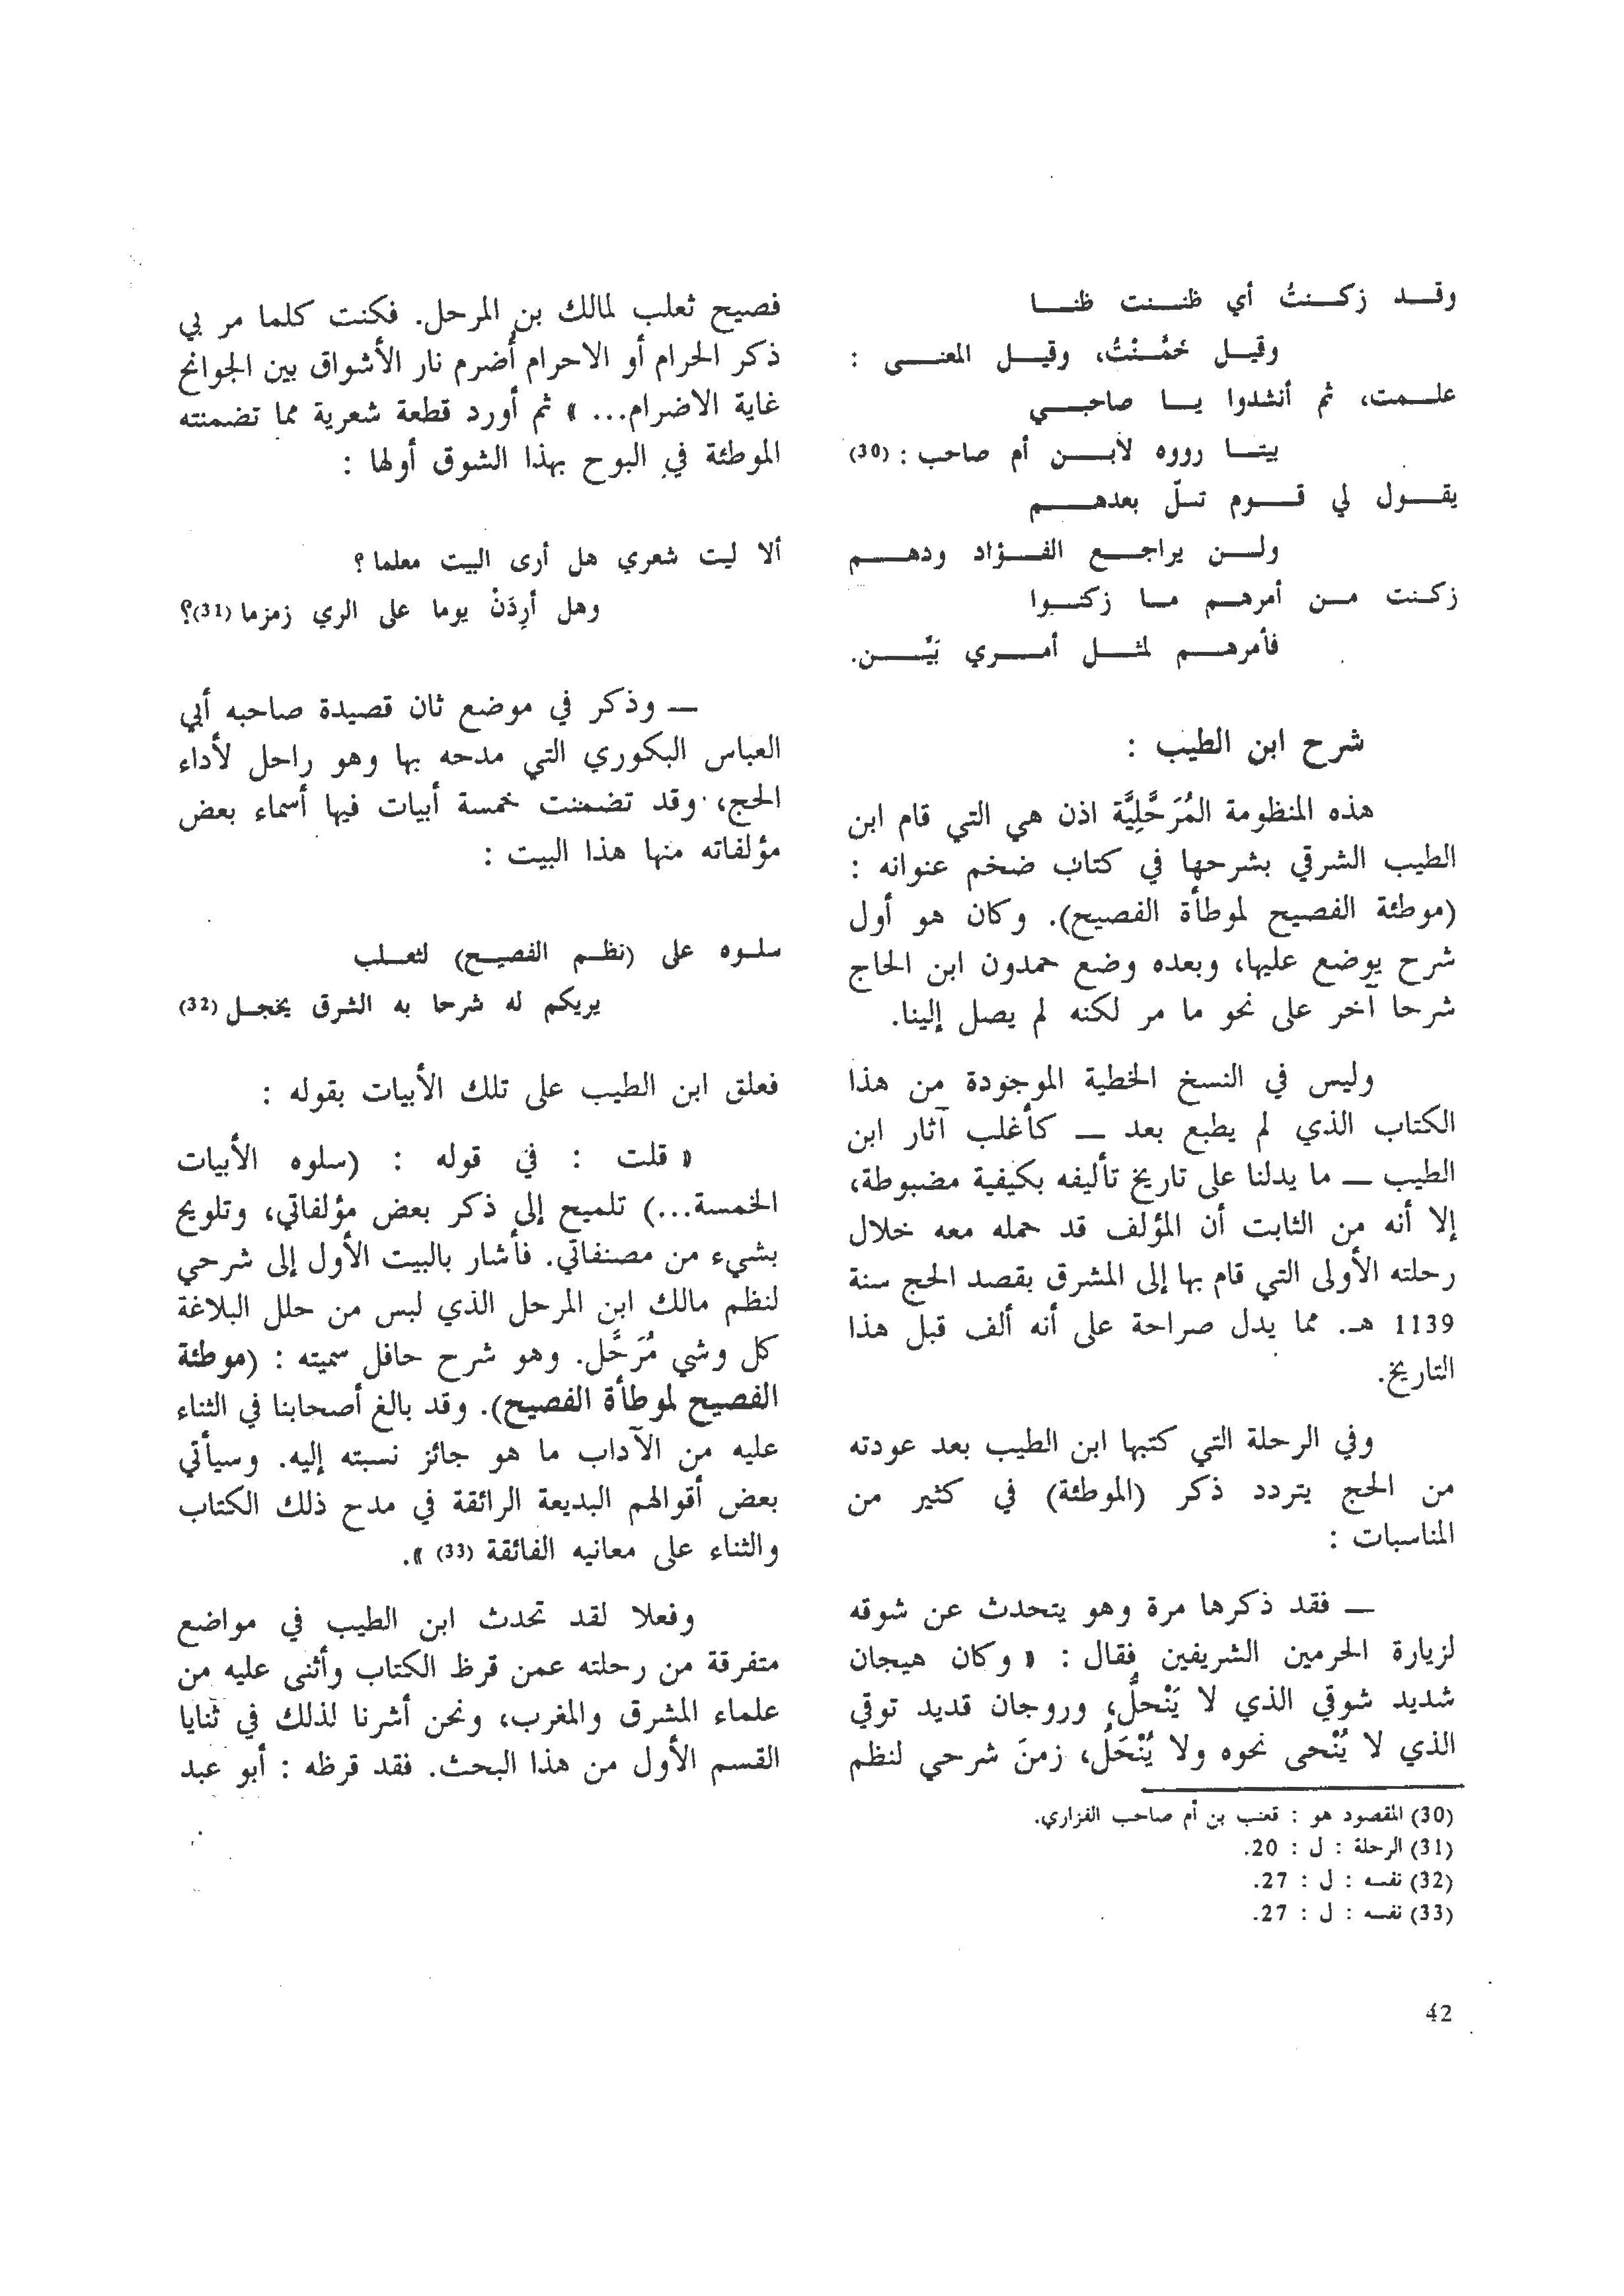 وقــد زكــنتُ أي ظنــنت ظنــا
وقيــل خَمَّــنْتُ، وقيــل المعنــى :
علــمت، ثم أنشدوا يــا صاحبــي
بيتــا رووه لأبــن أم صاحب : (30)
يقــول لي قــوم تسلّ بعدهــم
ولــن يراجــع الفــؤاد ودهــم
زكــنت مــن أمرهــم مــا زكنــوا
فأمرهــم لمثــل أمــري بَيِّــن.
شرح ابن الطيب :
هذه المنظومة المُرَحَّلِيَّة اذن هي التي قام ابن
الطيب الشرقي بشرحها في كتاب ضخم عنوانه :
(موطئة الفصيح لموطأة الفصيح). وكان هو أول
شرح يوضع عليها، وبعده وضع حمدون ابن الحاج
شرحا آخر على نحو ما مر لكنه لم يصل إلينا.
وليس في النسخ الخطية الموجودة من هذا
الكتاب الذي لم يطبع بعد — كأغلب آثار ابن
الطيب — ما يدلنا على تاريخ تأليفه بكيفية مضبوطة،
إلا أنه من الثابت أن المؤلف قد حمله معه خلال
رحلته الأولى التي قام بها إلى المشرق بقصد الحج سنة
1139 هـ. مما يدل صراحة على أنه ألف قبل هذا
التاريخ.
وفي الرحلة التي كتبها ابن الطيب بعد عودته
من الحج يتردد ذكر (الموطئة) في كثير من
المناسبات :
— فقد ذكرها مرة وهو يتحدث عن شوقه
لزيارة الحرمين الشريفين فقال : « وكان هيجان
شديد شوقي الذي لا يَنْحلُّ، وروجان قديد توقي
الذي لا يُنْحى نحوه ولا يُنْحَلُ، زمنَ شرحي لنظم
فصيح ثعلب لمالك بن المرحل. فكنت كلما مر بي
ذكر الحرام أو الاحرام أُضرم نار الأشواق بين الجوانح
غاية الاضرام... » ثم أورد قطعة شعرية مما تضمنته
الموطئة في البوح بهذا الشوق أولها :
ألا ليت شعري هل أرى البيت معلما ؟
وهل أرِدَنْ يوما على الري زمزما (31)؟
— وذكر في موضع ثان قصيدة صاحبه أبي
العباس البكوري التي مدحه بها وهو راحل لأداء
الحج، وقد تضمنت خمسة أبيات فيها أسماء بعض
مؤلفاته منها هذا البيت :
سلــوه على (نظــم الفصيــح) لثعــلب
يريكم له شرحا به الشرق يخجــل (32)
فعلق ابن الطيب على تلك الأبيات بقوله :
« قلت : في قوله : (سلوه الأبيات
الخمسة...) تلميح إلى ذكر بعض مؤلفاتي، وتلويح
بشيء من مصنفاتي. فأشار بالبيت الأول إلى شرحي
لنظم مالك ابن المرحل الذي لبس من حلل البلاغة
كل وشي مُرَحَّل. وهو شرح حافل سميته : (موطئة
الفصيح لموطأة الفصيح). وقد بالغ أصحابنا في الثناء
عليه من الآداب ما هو جائز نسبته إليه. وسيأتي
بعض أقوالهم البديعة الرائقة في مدح ذلك الكتاب
والثناء على معانيه الفائقة (33) ».
وفعلا لقد تحدث ابن الطيب في مواضع
متفرقة من رحلته عمن قرظ الكتاب وأثنى عليه من
علماء المشرق والمغرب، ونحن أشرنا لذلك في ثنايا
القسم الأول من هذا البحث. فقد قرظه : أبو عبد
(30) المقصود هو : قعنب بن أم صاحب الفزاري.
(31) الرحلة : ل : 20.
(32) نفسه : ل : 27.
(33) نفسه : ل : 27.
42